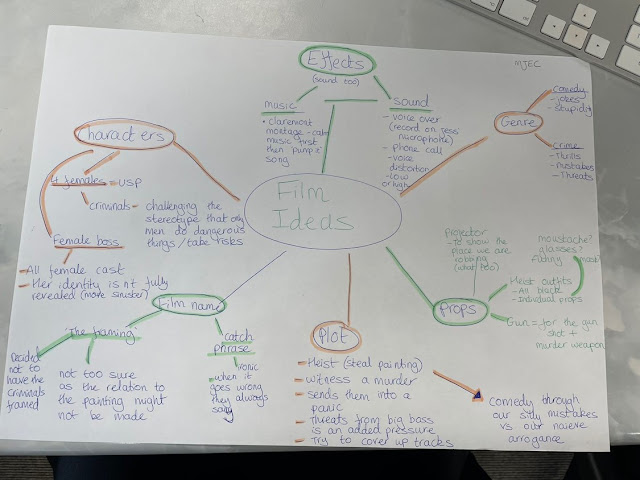 MJEC
Effects
(sound too)
music
• claremont
montage - calm
music first
then 'pump it'
song
sound
- voice over
(record on Jess'
microphone)
- phone call
- voice
distortion
- low
or high
Genre
Comedy
- jokes
- stupidity
Crime
- Thrills
- mistakes
- Threats
Characters
4 females - USP
criminals - challenging the
stereotype that only
men do dangerous
things / take risks
Female boss
- All female cast
- Her identity isnt fully
revealed (more sinister)
Film
Ideas
Film name
'The framing'
Decided
not to
have the
criminals
framed
not too sure
as the relation to
the painting might
not be made
catch
phrase
ironic
- when it
goes wrong
they always
say
Plot
- Heist (steal painting)
- witness a murder
- sends them into a
panic
- Threats from big boss
is an added pressure
- Try to cover up tracks
Comedy through
our silly mistakes
vs our naieve
arrogance
Props
Projector
- To show the
place we are
robbing
moustache?
glasses?
mask?
Heist outfits
- All black
- Individual props
Gun - for the gun
shot +
murder weapon